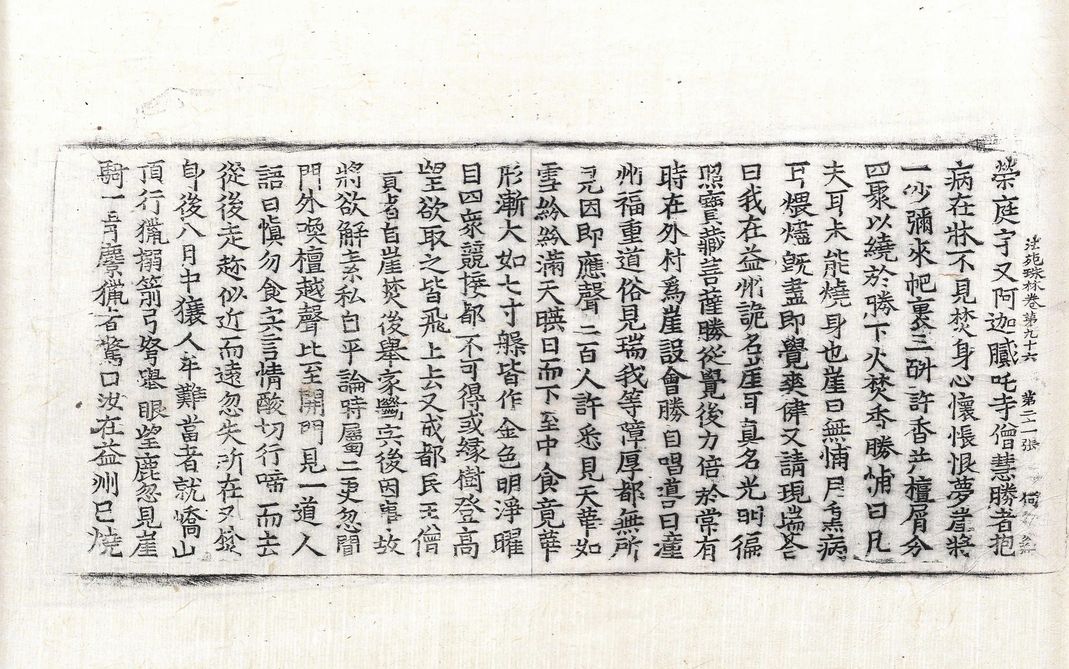 法苑珠林卷第九十六 第二一張
榮庭宇又阿迦膩吒寺僧慧勝者抱
病在牀不見焚身心懷悵恨夢崖將
一沙彌來帊裹三斛許香并檀屑分
四聚以繞於勝下火焚香勝怖曰凡
夫耳未能燒身也崖曰無怖用熏病
耳煨燼既盡即覺爽健又請現瑞荅
曰我在益州詭名崖耳真名光明徧
照寶藏菩薩勝從覺後力倍於常有
時在外村爲崖設會勝自唱導曰潼
州福重道俗見瑞我等障厚都無所
見因即應聲二百人許悉見天華如
雪紛紛滿天暎日而下至中食竟華
形漸大如七寸槃皆作金色明淨曜
目四衆競接都不可得或緣樹登高
望欲取之皆飛上去又成都民王僧
貴者自崖焚後舉家斷宍後因事故
將欲解素私自平論時屬二更忽聞
門外喚檀越聲比至開門見一道人
語曰慎勿食宍言情酸切行啼而去
從後走趂似近而遠忽失所在又焚
身後八月中獽人牟難當者就嶠山
頂行獵搦箭弓弩舉眼望鹿忽見崖
騎一青麖獵者驚曰汝在益州已燒